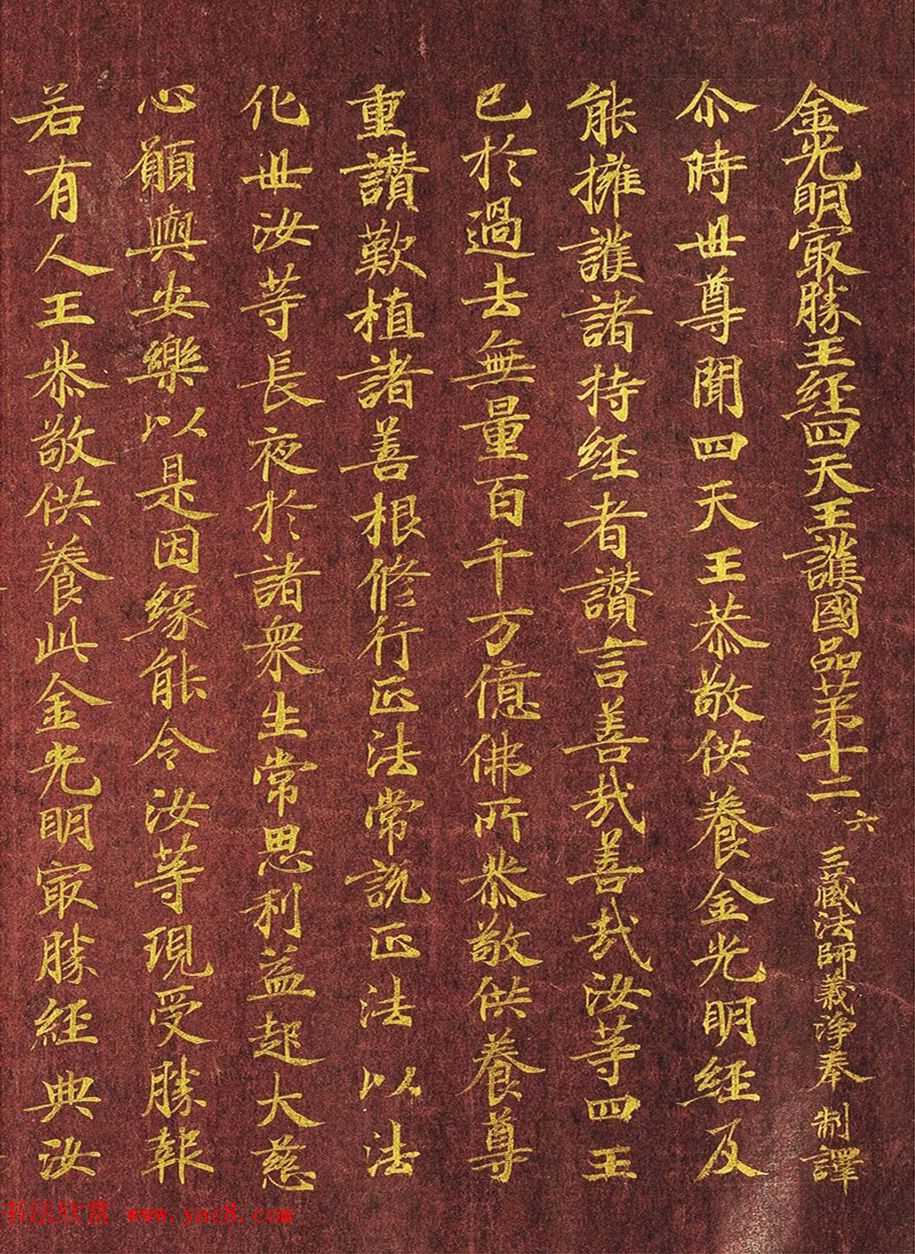 金光明冣勝王經四天王護國品苐十二 六 三藏法師義淨奉 制譯
尒時世尊聞四天王恭敬供養金光明經及
能擁護諸持經者讃言善哉善哉汝等四王
已於過去無量百千万億佛所恭敬供養尊
重讃歎植諸善根修行正法常說正法以法
化世汝等長夜於諸衆生常思利益起大慈
心願與安樂以是因緣能令汝等現受勝報
若有人王恭敬供養此金光明冣勝經典汝
书法欣赏 www.yac8.com